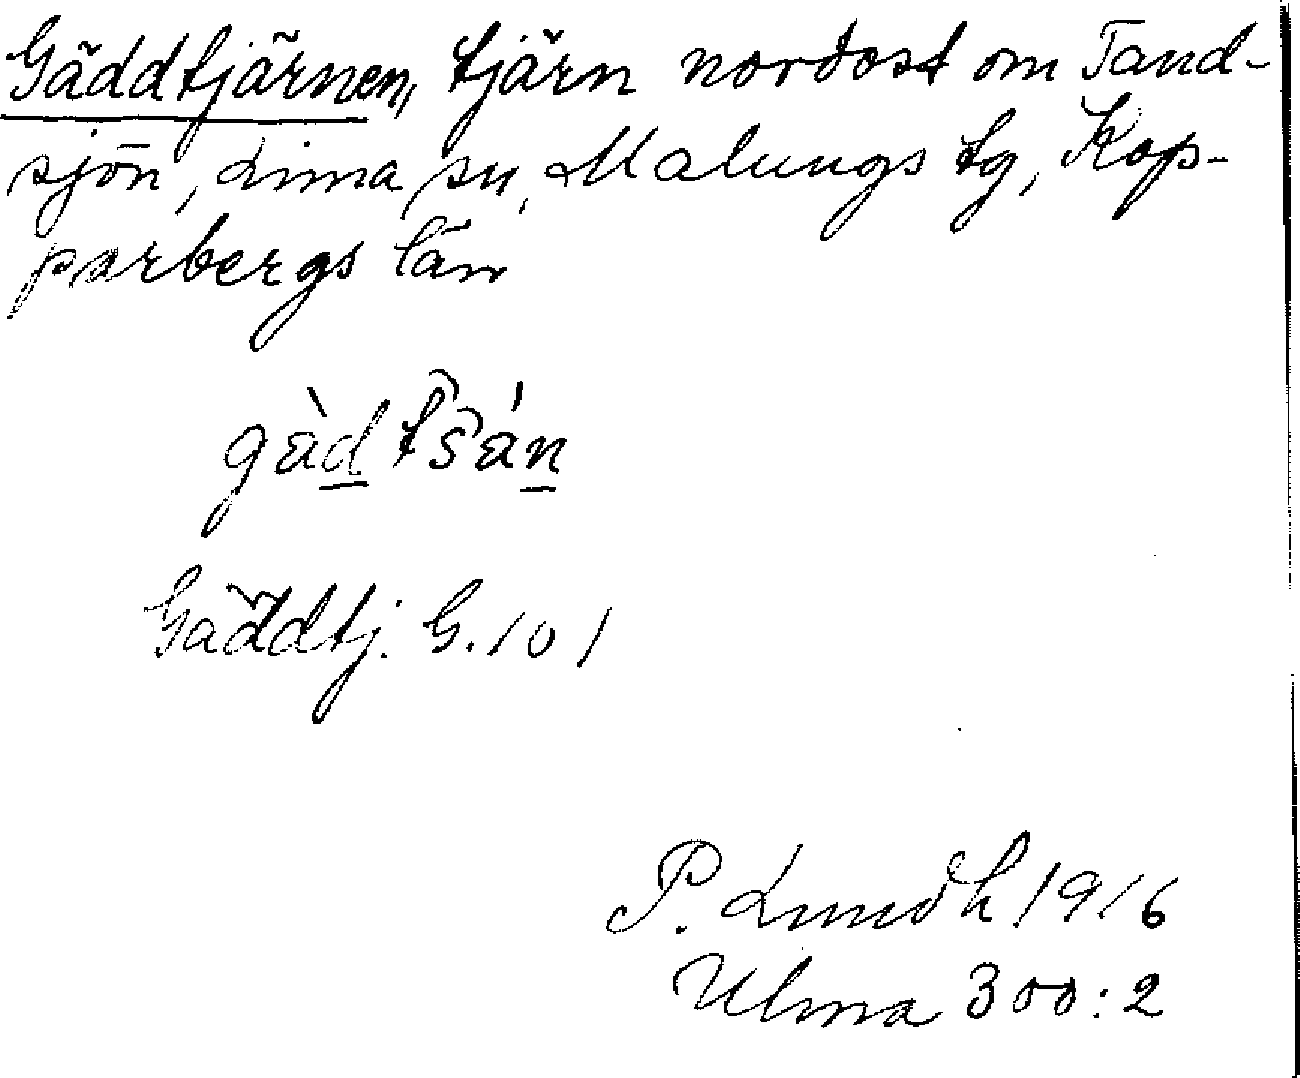 Gäddtjärnen, tjärn nordost om Tand-
sjön, Lima sn, Malungs tg, Kop-
parbergs län
gàd tšán
Gäddtj. G. 101
P. Lundh 1916
Ulma 300:2